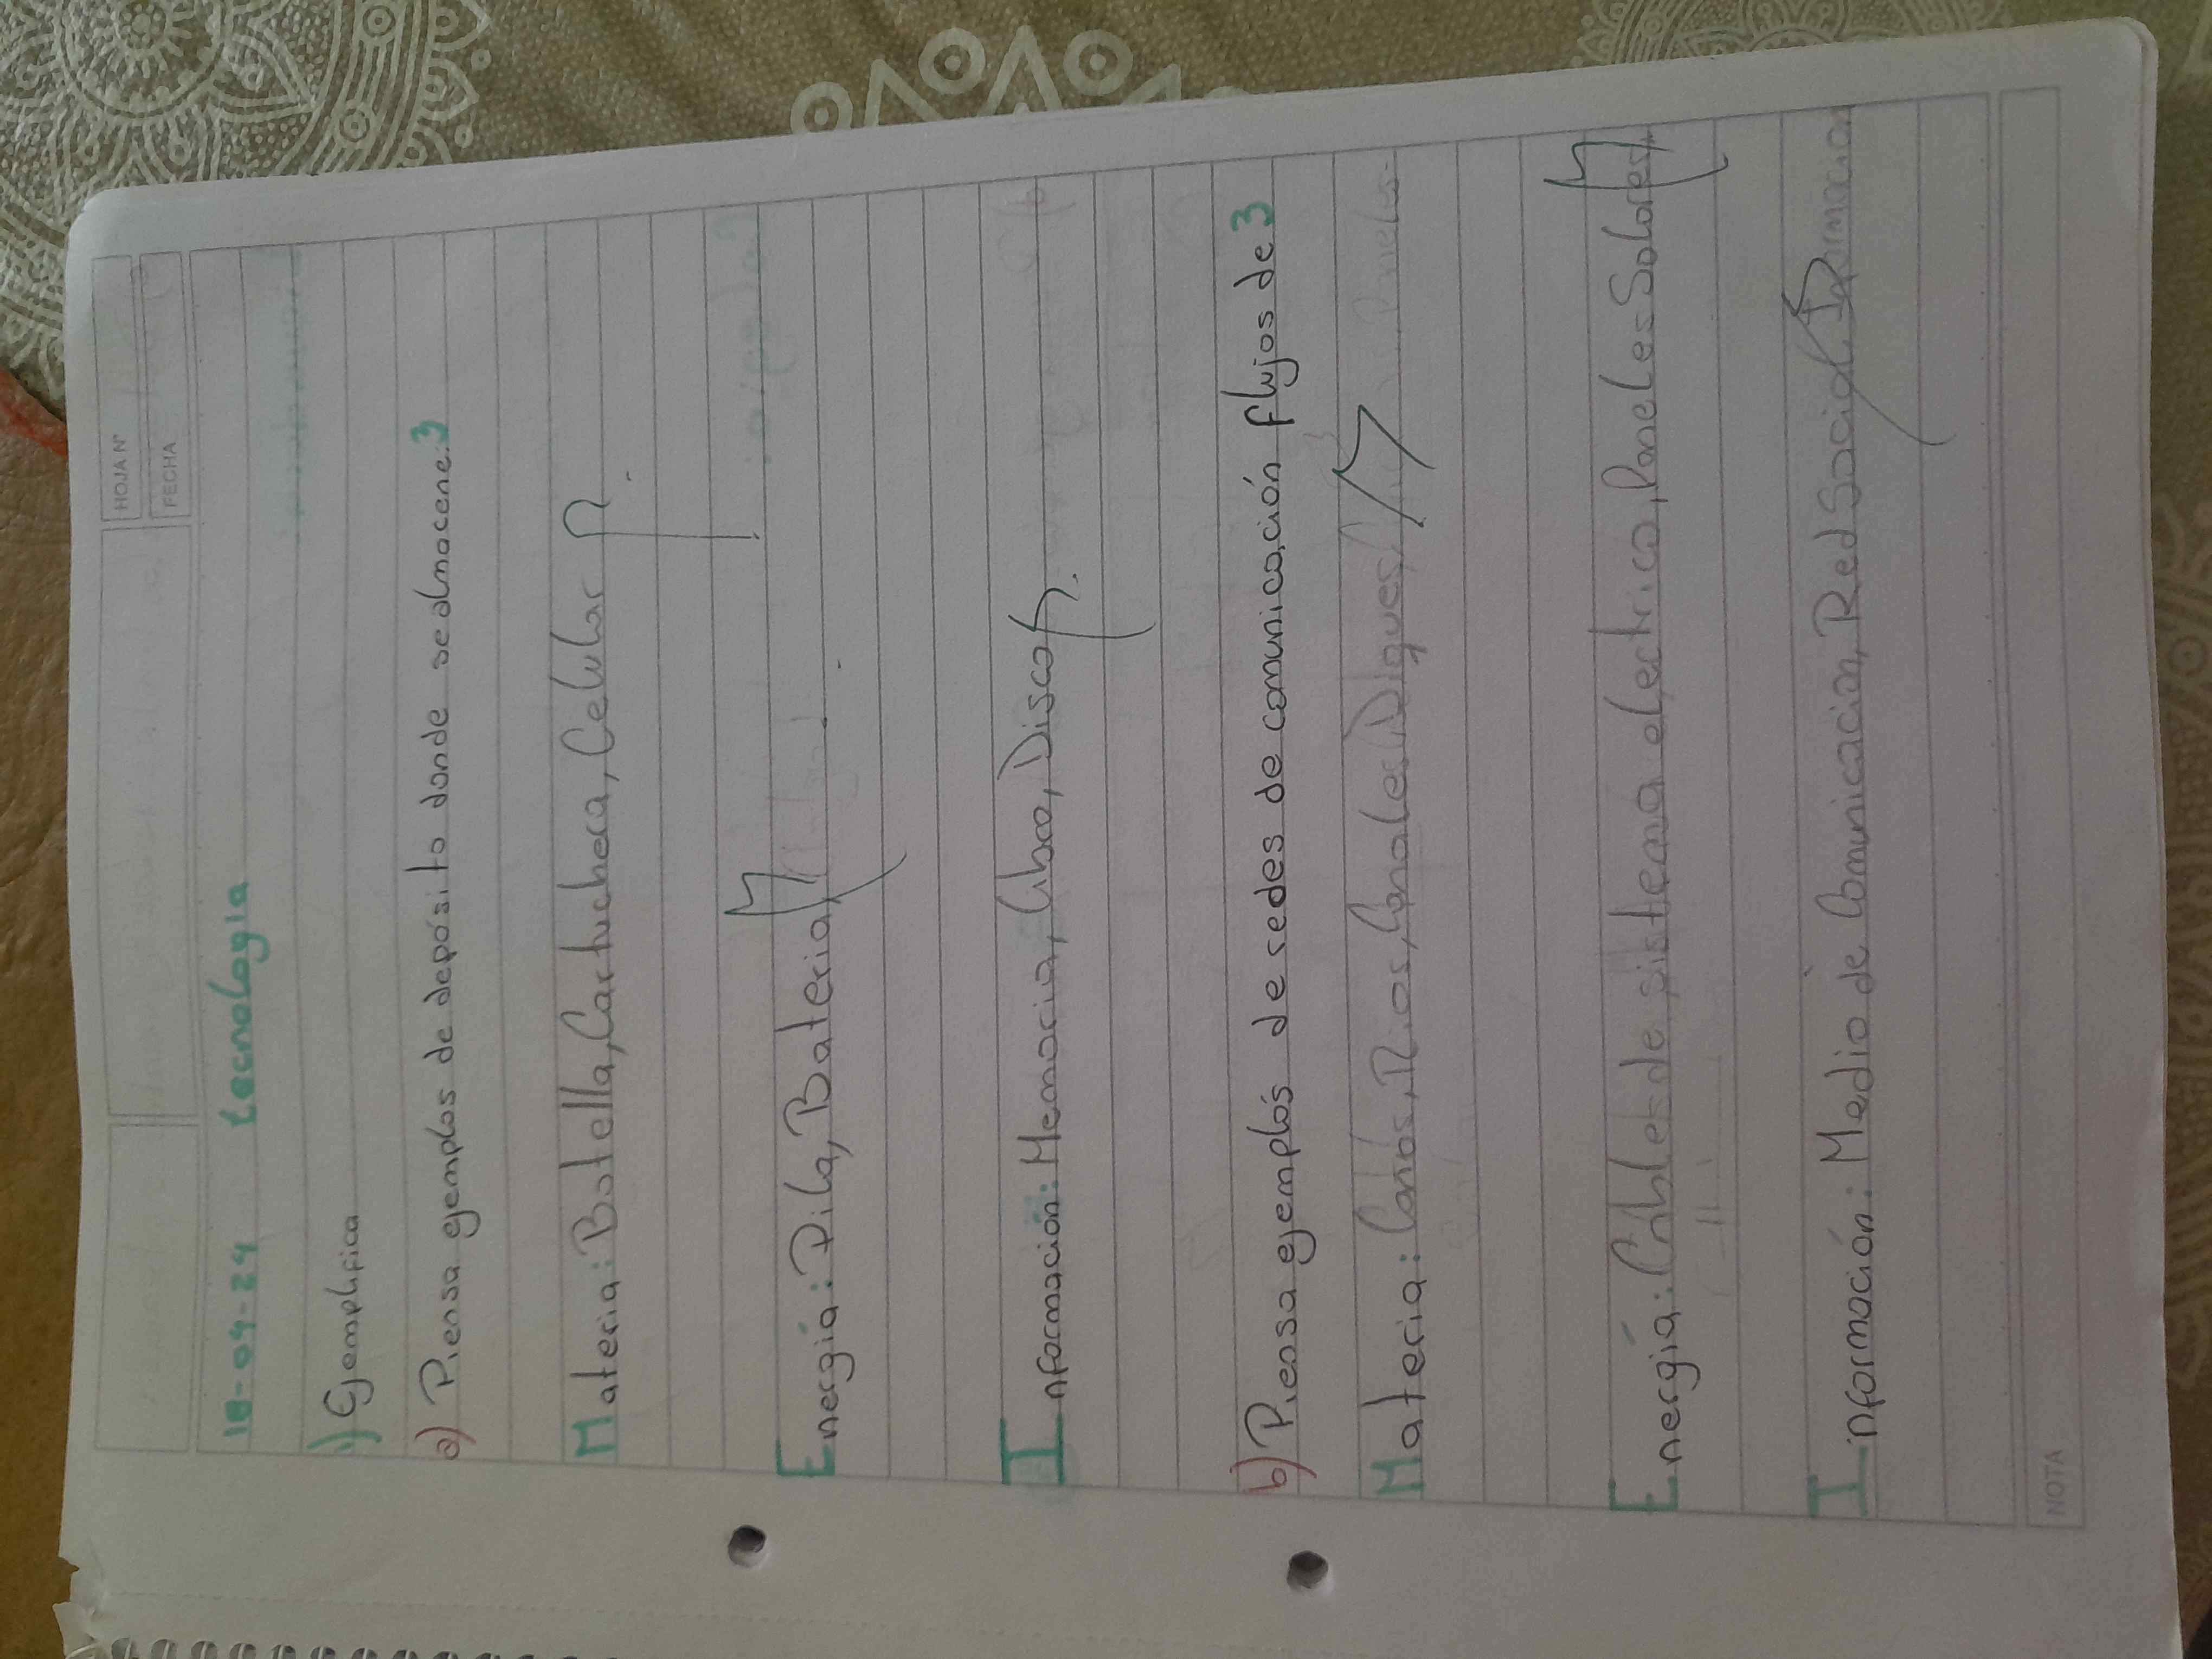 HOJA N°
FECHA
18-04-24 tecnología
1) Ejemplifica
a) Piensa ejemplos de depósito donde se almacene: 3
Materia: Botella, Cartuchera, Celular
Energía: Pila, Bateria,
Información: Memoria, Disco
b) Piensa ejemplos de redes de comunicación flujos de 3
Materia: Caños, Rios, Canales, Diques,
Energía: Cables de sisteama electrico, Paneles Solares,
Información: Medio de Comunicacion, Red Social, Informacion
NOTA